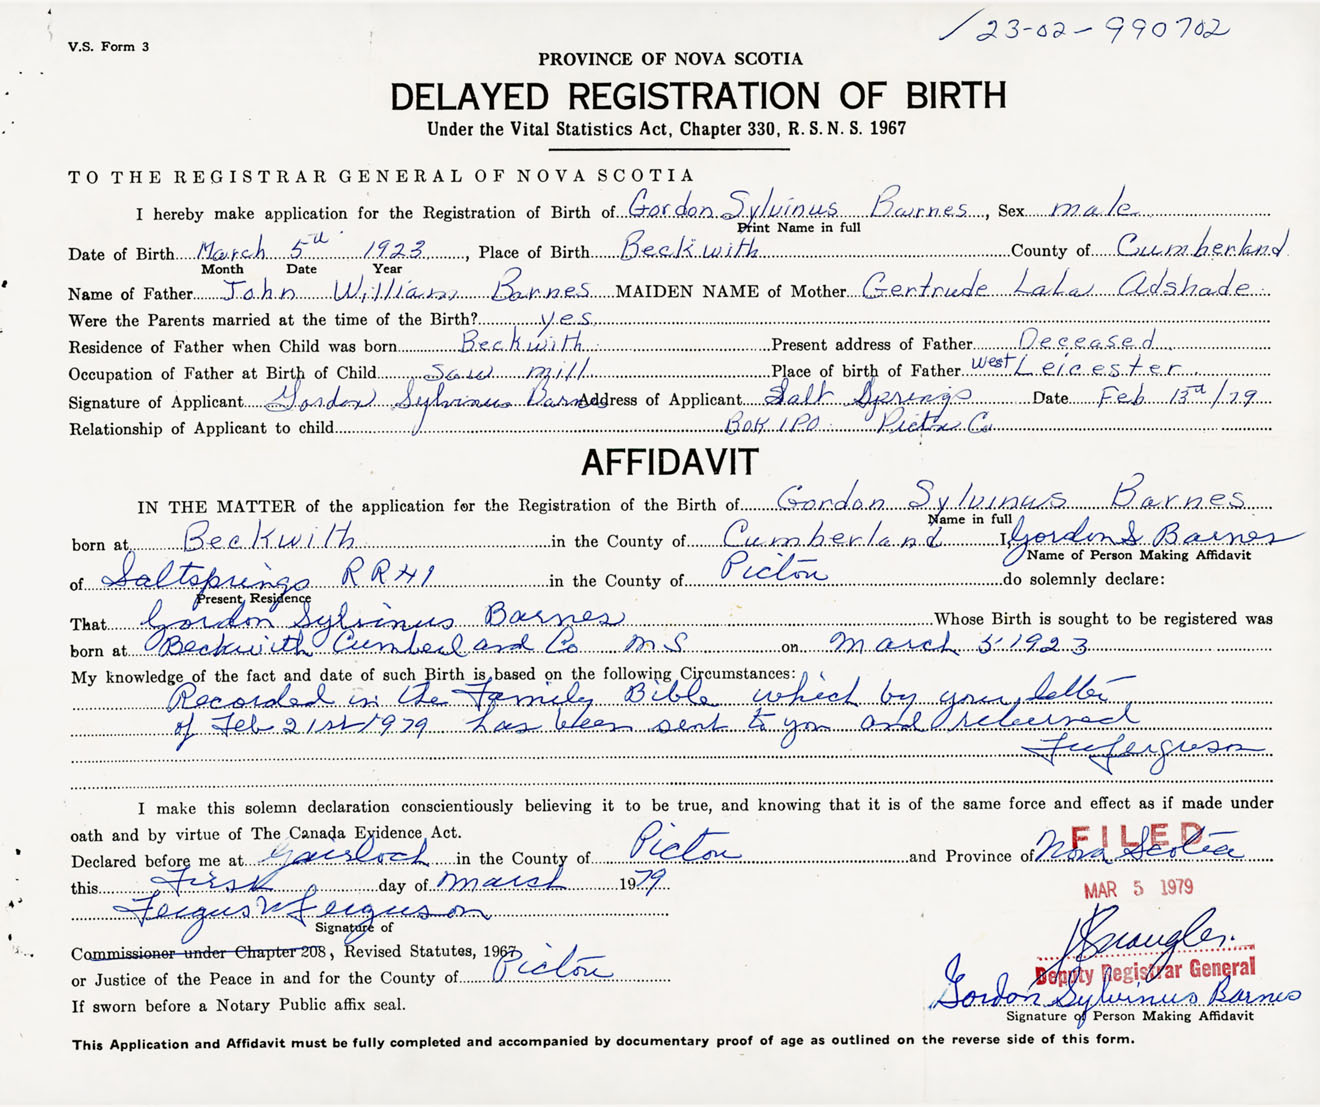 /23-02-990702
V.S. Form 3
PROVINCE OF NOVA SCOTIA
DELAYED REGISTRATION OF BIRTH
Under the Vital Statistics Act, Chapter 330, R.S.N.S. 1967
TO THE REGISTRAR GENERAL OF NOVA SCOTIA
I hereby make application for the Registration of Birth of Gordon Sylvinus Barnes, Sex male
Print Name in full
Date of Birth March 5th 1923, Place of Birth Beckwith County of Cumberland
Month Date Year
Name of Father John William Barnes MAIDEN NAME of Mother Gertrude Lala Adshade
Were the Parents married at the time of the Birth? yes
Residence of Father when Child was born Beckwith Present address of Father Deceased
Occupation of Father at Birth of Child Saw mill Place of birth of Father West Leicester
Signature of Applicant Gordon Sylvinus Barnes Address of Applicant Salt Springs Date Feb 13th/79
Relationship of Applicant to child Box 1 PO. Pictou Co
AFFIDAVIT
IN THE MATTER of the application for the Registration of the Birth of Gordon Sylvinus Barnes
Name in full
born at Beckwith in the County of Cumberland I, Gordon S Barnes
Name of Person Making Affidavit
of Saltsprings RR#1 in the County of Pictou do solemnly declare:
Present Residence
That Gordon Sylvinus Barnes Whose Birth is sought to be registered was
born at Beckwith Cumberland Co N S on March 5 1923
My knowledge of the fact and date of such Birth is based on the following Circumstances:
Recorded in the Family Bible which by your letter
of Feb 21st 1979 has been sent to you and returned
Ferguson
I make this solemn declaration conscientiously believing it to be true, and knowing that it is of the same force and effect as if made under
oath and by virtue of The Canada Evidence Act.
FILED
Declared before me at Gairloch in the County of Pictou and Province of Nova Scotia
this First day of March 1979
MAR 5 1979
Fergus Ferguson
Signature of
Commissioner under Chapter 208, Revised Statutes, 1967
or Justice of the Peace in and for the County of Pictou
Deputy Registrar General
Gordon Sylvinus Barnes
If sworn before a Notary Public affix seal.
Signature of Person Making Affidavit
This Application and Affidavit must be fully completed and accompanied by documentary proof of age as outlined on the reverse side of this form.